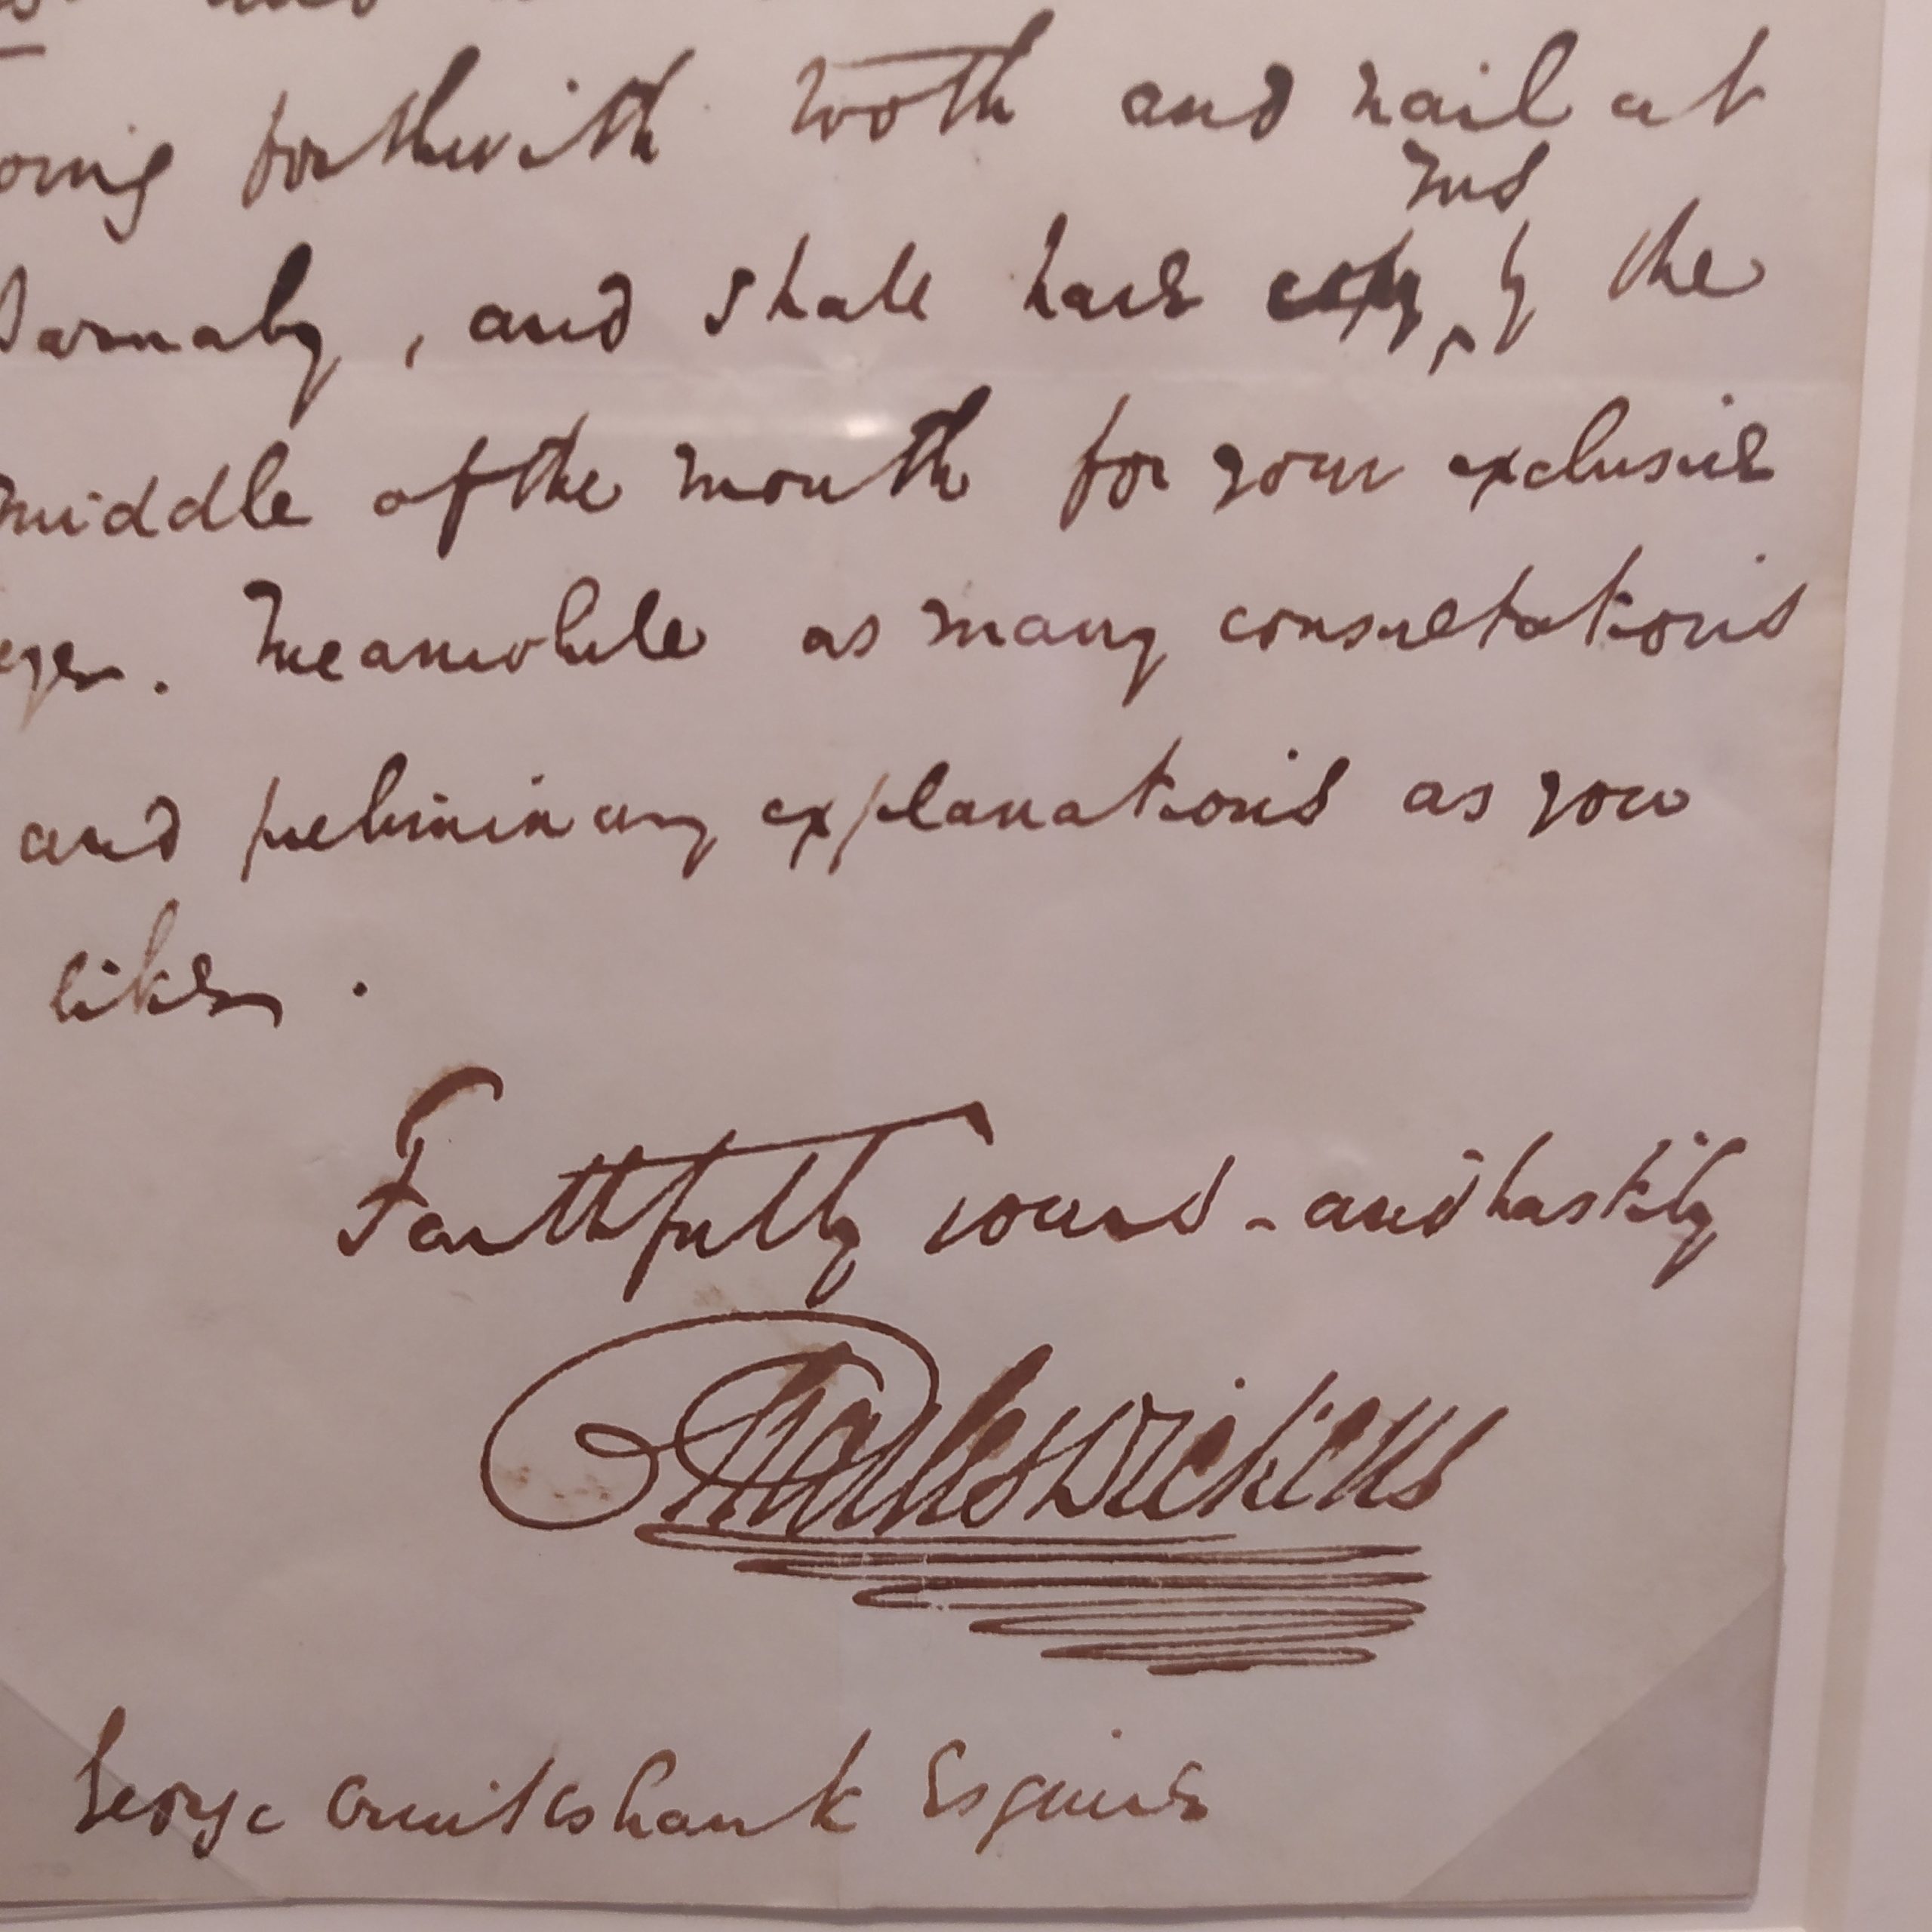 oing forthwith tooth and nail at
Barnaby, and shall have copy by the
Ms
middle of the month for your exclusive
eye. Meanwhile as many consultations
and preliminary explanations as you
like.
Faithfully yours - and hastily
Charles Dickens
George Cruikshank Esquire